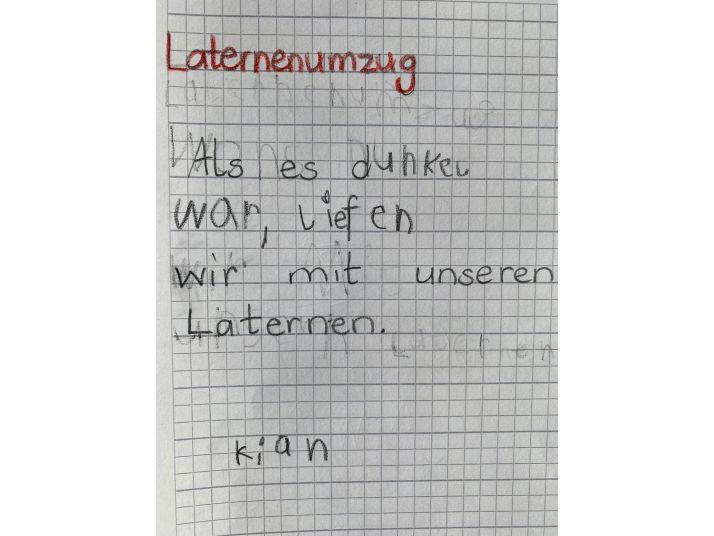 Laternenumzug
Als es dunkel
war, liefen
wir mit unseren
Laternen.
Kian